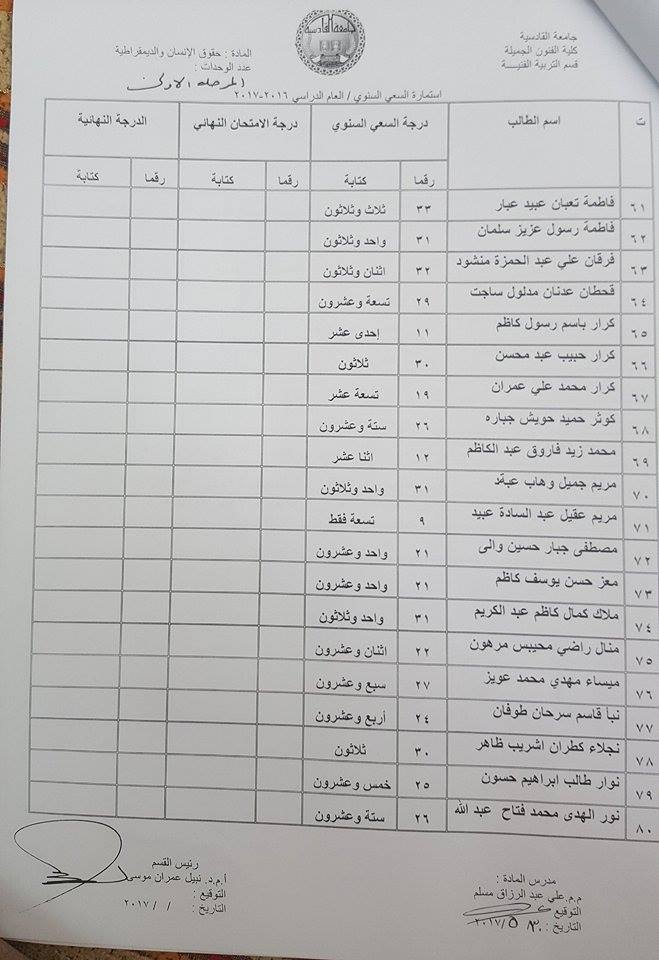 جامعة القادسية
كلية الفنون الجميلة
قسم التربية الفنيـــة
جامعة القادسية
المادة : حقوق الإنسان والديمقراطية
عدد الوحدات :
المرحلة الاولى
استمارة السعي السنوي / العام الدراسي ٢٠١٦-٢٠١٧
ت اسم الطالب درجة السعي السنوي درجة الامتحان النهائي الدرجة النهائية
رقما كتابة رقما كتابة رقما كتابة
٦١ فاطمة تعبان عبيد عبار ٣٣ ثلاث وثلاثون
٦٢ فاطمة رسول عزيز سلمان ٣١ واحد وثلاثون
٦٣ فرقان علي عبد الحمزة منشود ٣٢ اثنان وثلاثون
٦٤ قحطان عدنان مدلول ساجت ٢٩ تسعة وعشرون
٦٥ كرار باسم رسول كاظم ١١ إحدى عشر
٦٦ كرار حبيب عبد محسن ٣٠ ثلاثون
٦٧ كرار محمد علي عمران ١٩ تسعة عشر
٦٨ كوثر حميد حويش جباره ٢٦ ستة وعشرون
٦٩ محمد زيد فاروق عبد الكاظم ١٢ اثنا عشر
٧٠ مريم جميل وهاب ٣١ واحد وثلاثون
٧١ مريم عقيل عبد السادة عبيد ٩ تسعة فقط
٧٢ مصطفى جبار حسين والى ٢١ واحد وعشرون
٧٣ معز حسن يوسف كاظم ٢١ واحد وعشرون
٧٤ ملاك كمال كاظم عبد الكريم ٣١ واحد وثلاثون
٧٥ منال راضي محيبس مرهون ٢٢ اثنان وعشرون
٧٦ ميساء مهدي محمد عويز ٢٧ سبع وعشرون
٧٧ نبأ قاسم سرحان طوفان ٢٤ أربع وعشرون
٧٨ نجلاء كطران اشريب ظاهر ٣٠ ثلاثون
٧٩ نوار طالب ابراهيم حسون ٢٥ خمس وعشرون
٨٠ نور الهدى محمد فتاح عبد الله ٢٦ ستة وعشرون
مدرس المادة :
م.م.علي عبد الرزاق مسلم
التوقيع :
التاريخ : ٣٠ ٥ ٢٠١٧/
رئيس القسم
أ.م.د. نبيل عمران موسى
التوقيع :
التاريخ : / / ٢٠١٧